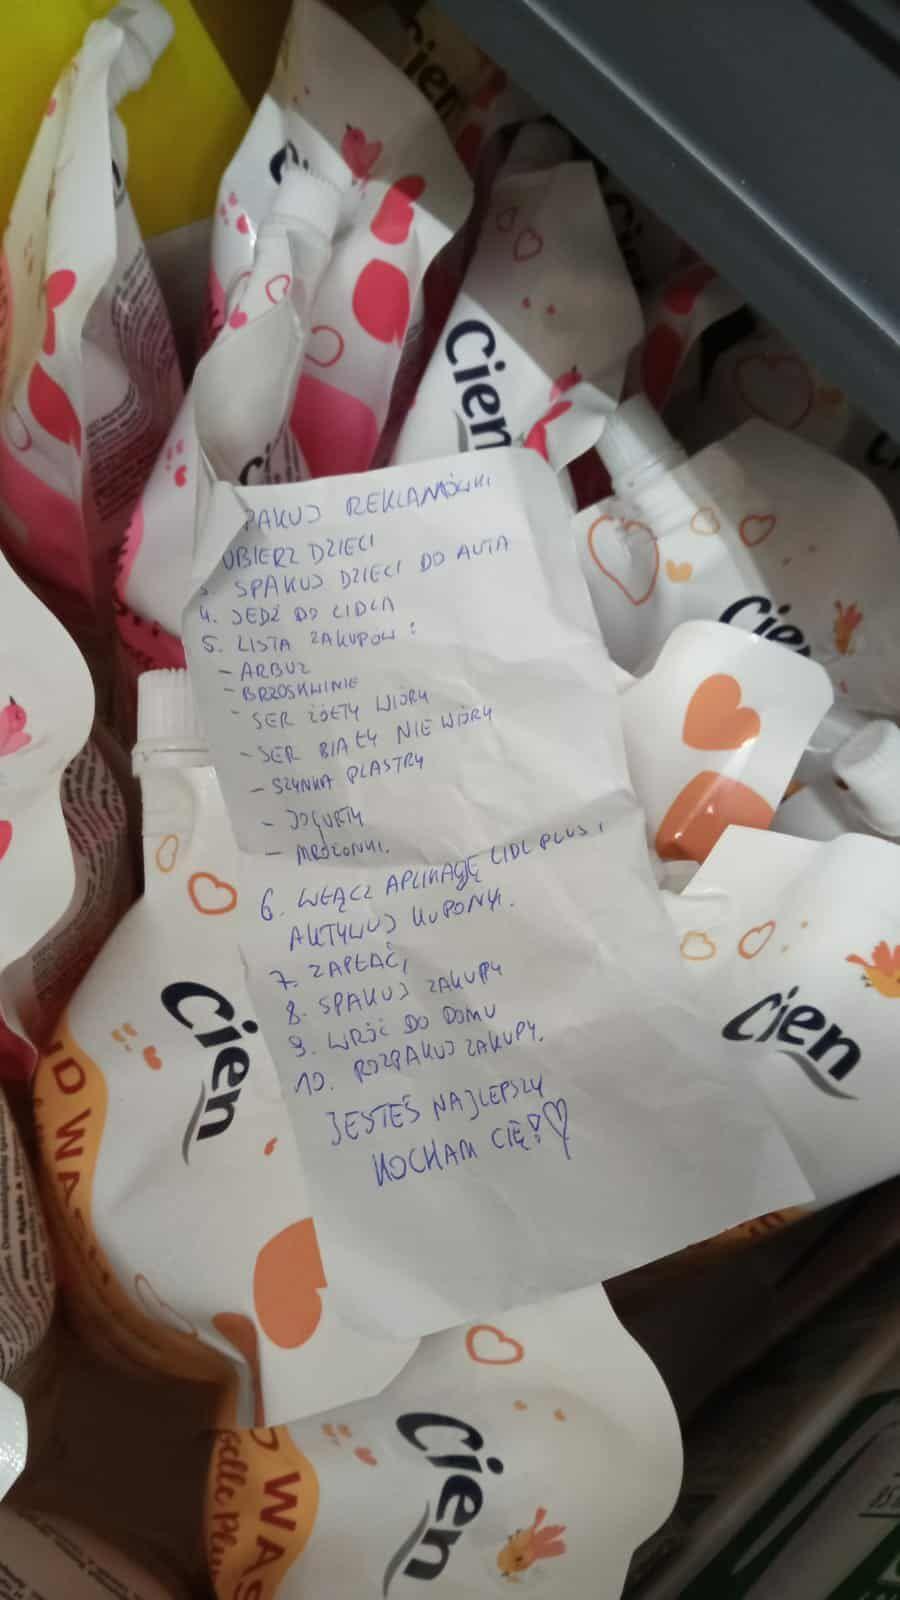 Cien
Cien
Cien
Cien
PAKUJ REKLAMÓWKI
UBIERZ DZIECI
3. SPAKUJ DZIECI DO AUTA
4. JEDŹ DO LIDLA
5. LISTA ZAKUPÓW:
- ARBUZ
- BRZOSKWINIE
- SER ŻÓŁTY WIÓRY
- SER BIAŁY NIE WIÓRY
- SZYNKA PLASTRY
- JOGURTY
- MROŻONKI.
6. WŁĄCZ APLIKACJĘ LIDL PLUS I
AKTYWUJ KUPONY.
7. ZAPŁAĆ,
8. SPAKUJ ZAKUPY
9. WRÓĆ DO DOMU
10. ROZPAKUJ ZAKUPY.
JESTEŚ NAJLEPSZY
KOCHAM CIĘ!♡
Cien
Cien
ND WAS
Cien
WAS